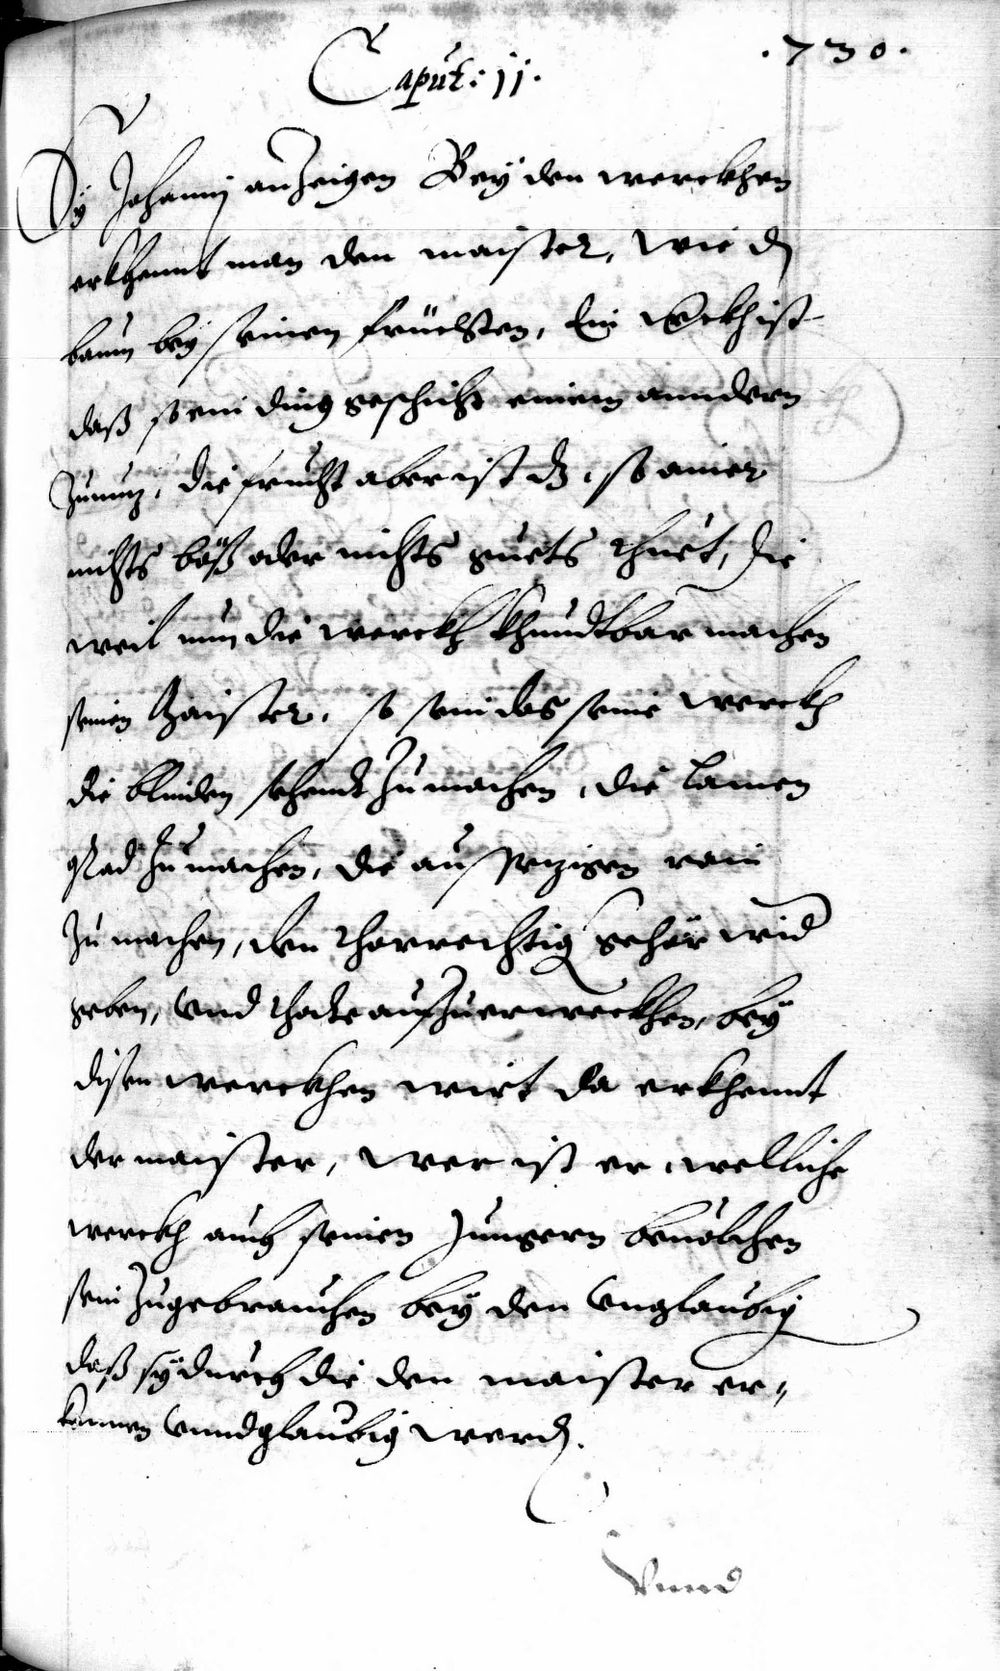 .730.
Caput: 11.
Sÿ Johannj anzeigen Beÿ den werckhen
erkhennt man den maister, wie d
baum beÿ seinen früchten, Ein werckh ist
daß so ein ding geschicht einem anndern
zunuz, die frucht aber ist dz, so ainer
nichts böß oder nichts guets thuet, Die
weil nun die werckh khundtbar machen
seinen Maister, so sein das seine werckh
die blinden sehendt zumachen, die Lamen
grad zu machen, die aussezigen rain
zu machen, den thorrechtig gehör wid
geben, vnd thodte aufzuerweckhen, beÿ
disen werckhen wirt da erkhennt
der maister, wer ist er, welliche
werckh auch seinen Jungern beuolchen
sein zugebrauchen beÿ den vnglaubig
daß sÿ durch die den maister er-
kennen vnnd glaubig werd.
Vnnd